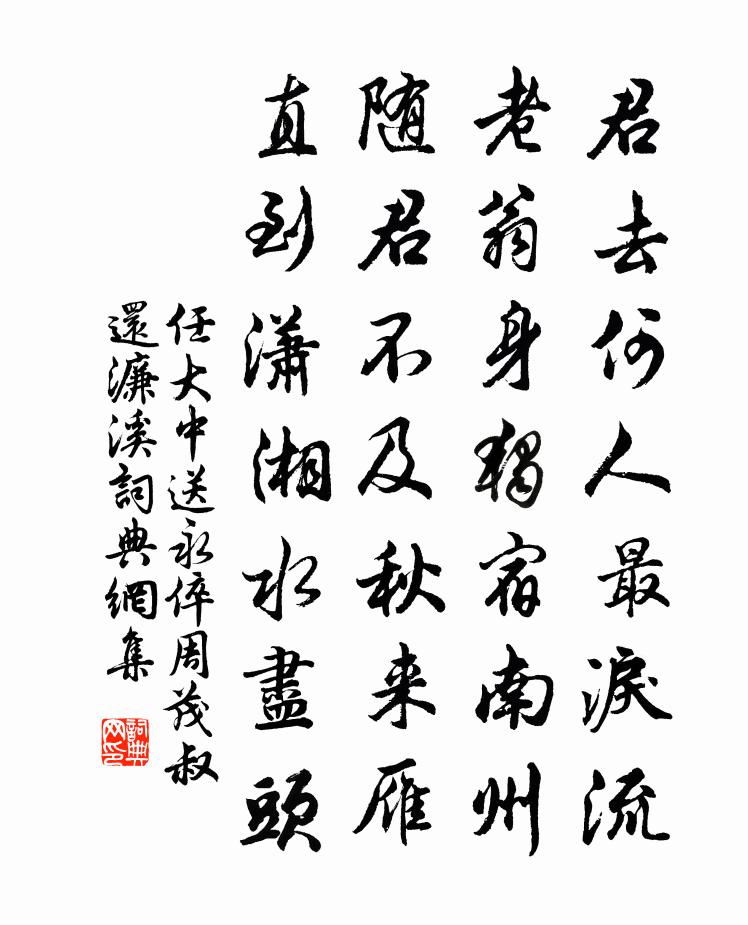 君去何人最淚流
老翁身獨宿南州
随君不及秋来雁
直到瀟湘水盡頭
任大中送永倅周茂叔
還濂溪詞典網集
詞典网印